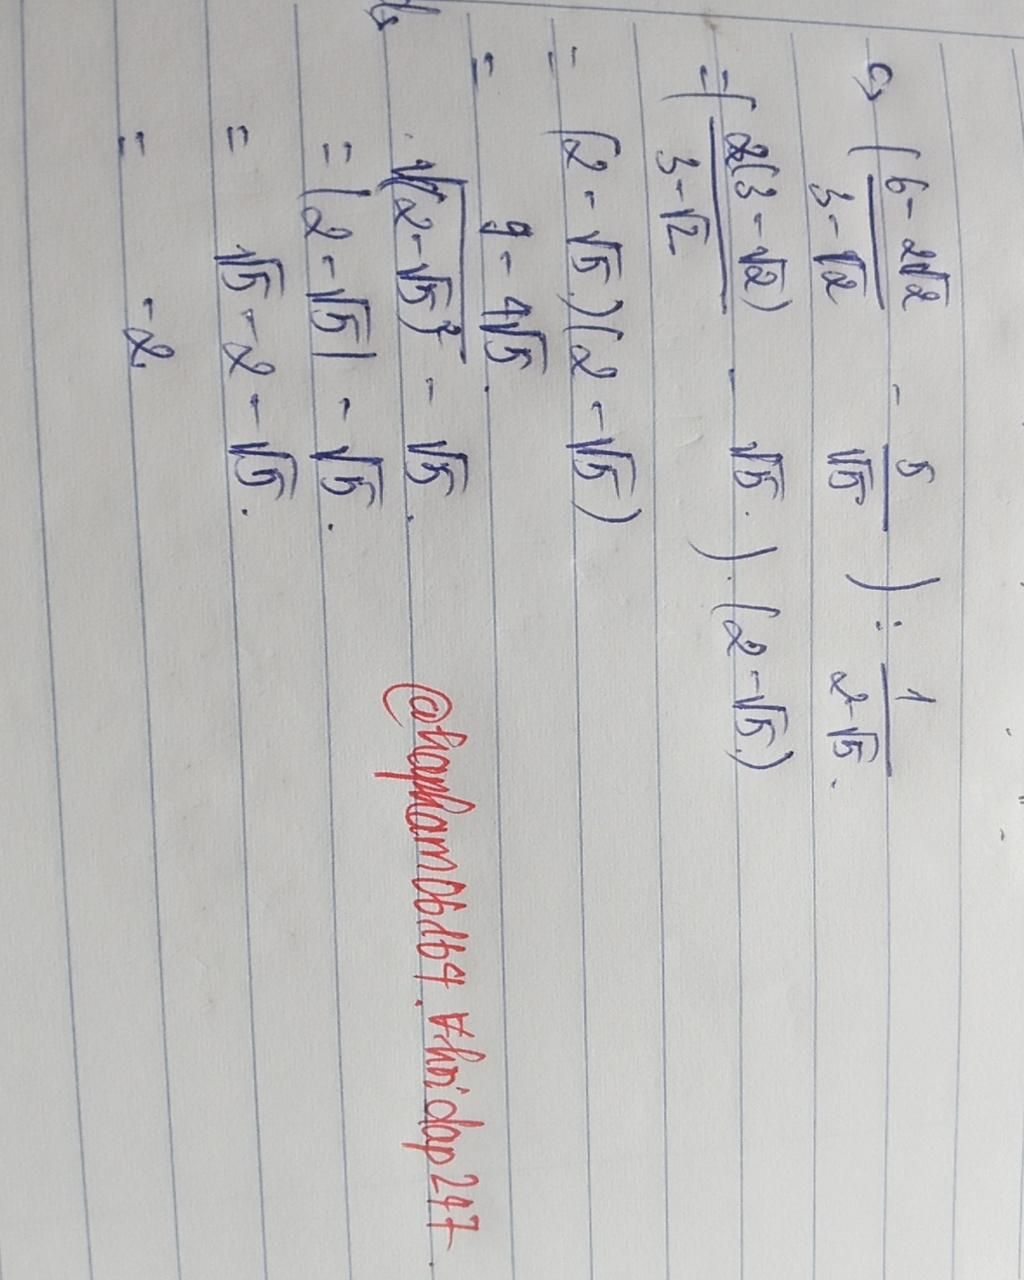 c, (6-2√2/3-√2 - 5/√5) : 1/2-√5.
= (2(3-√2)/3-√2 - √5.) . (2-√5.)
= (2-√5.)(2-√5)
= 9-4√5.
√(2-√5)² - √5.
= |2-√5| - √5.
= √5-2-√5.
= -2.
@hapham06169. #hoidap247